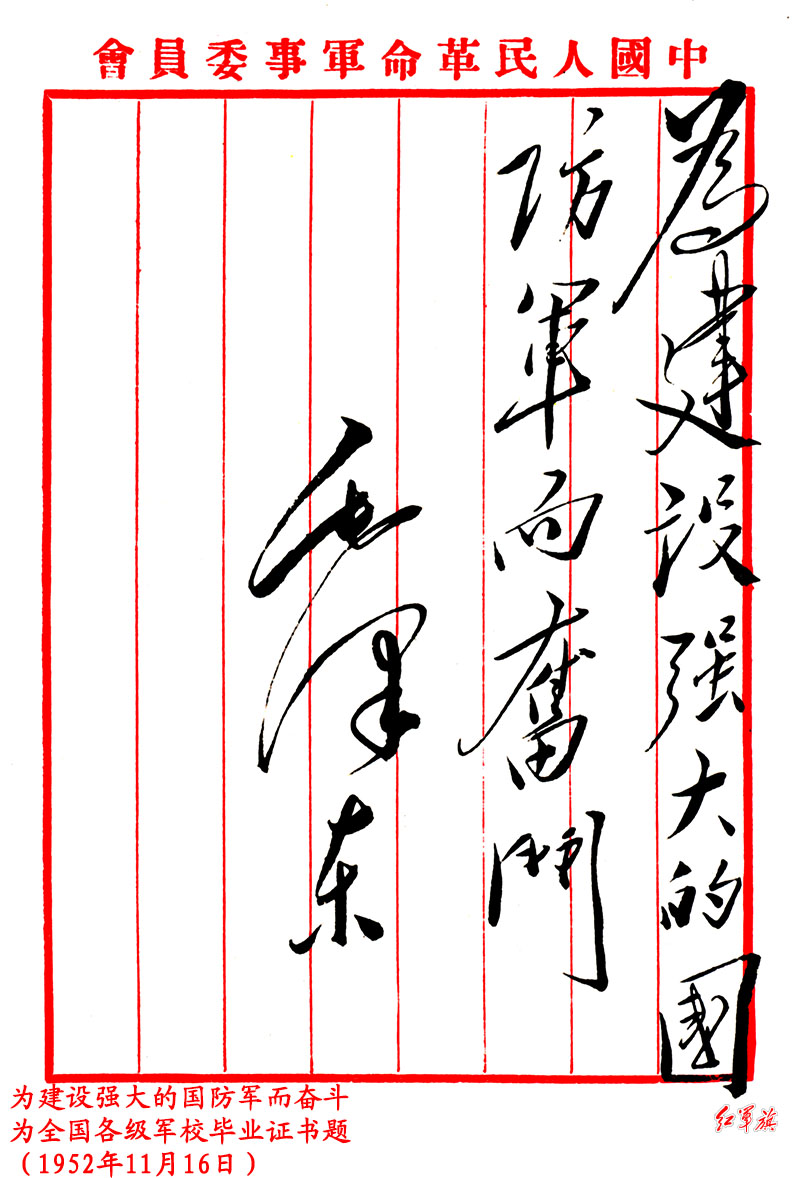 中國人民革命軍事委員會
為建设强大的國
防軍而奮鬥
毛澤东
为建设强大的国防军而奋斗
为全国各级军校毕业证书题
（1952年11月16日）
红军旗